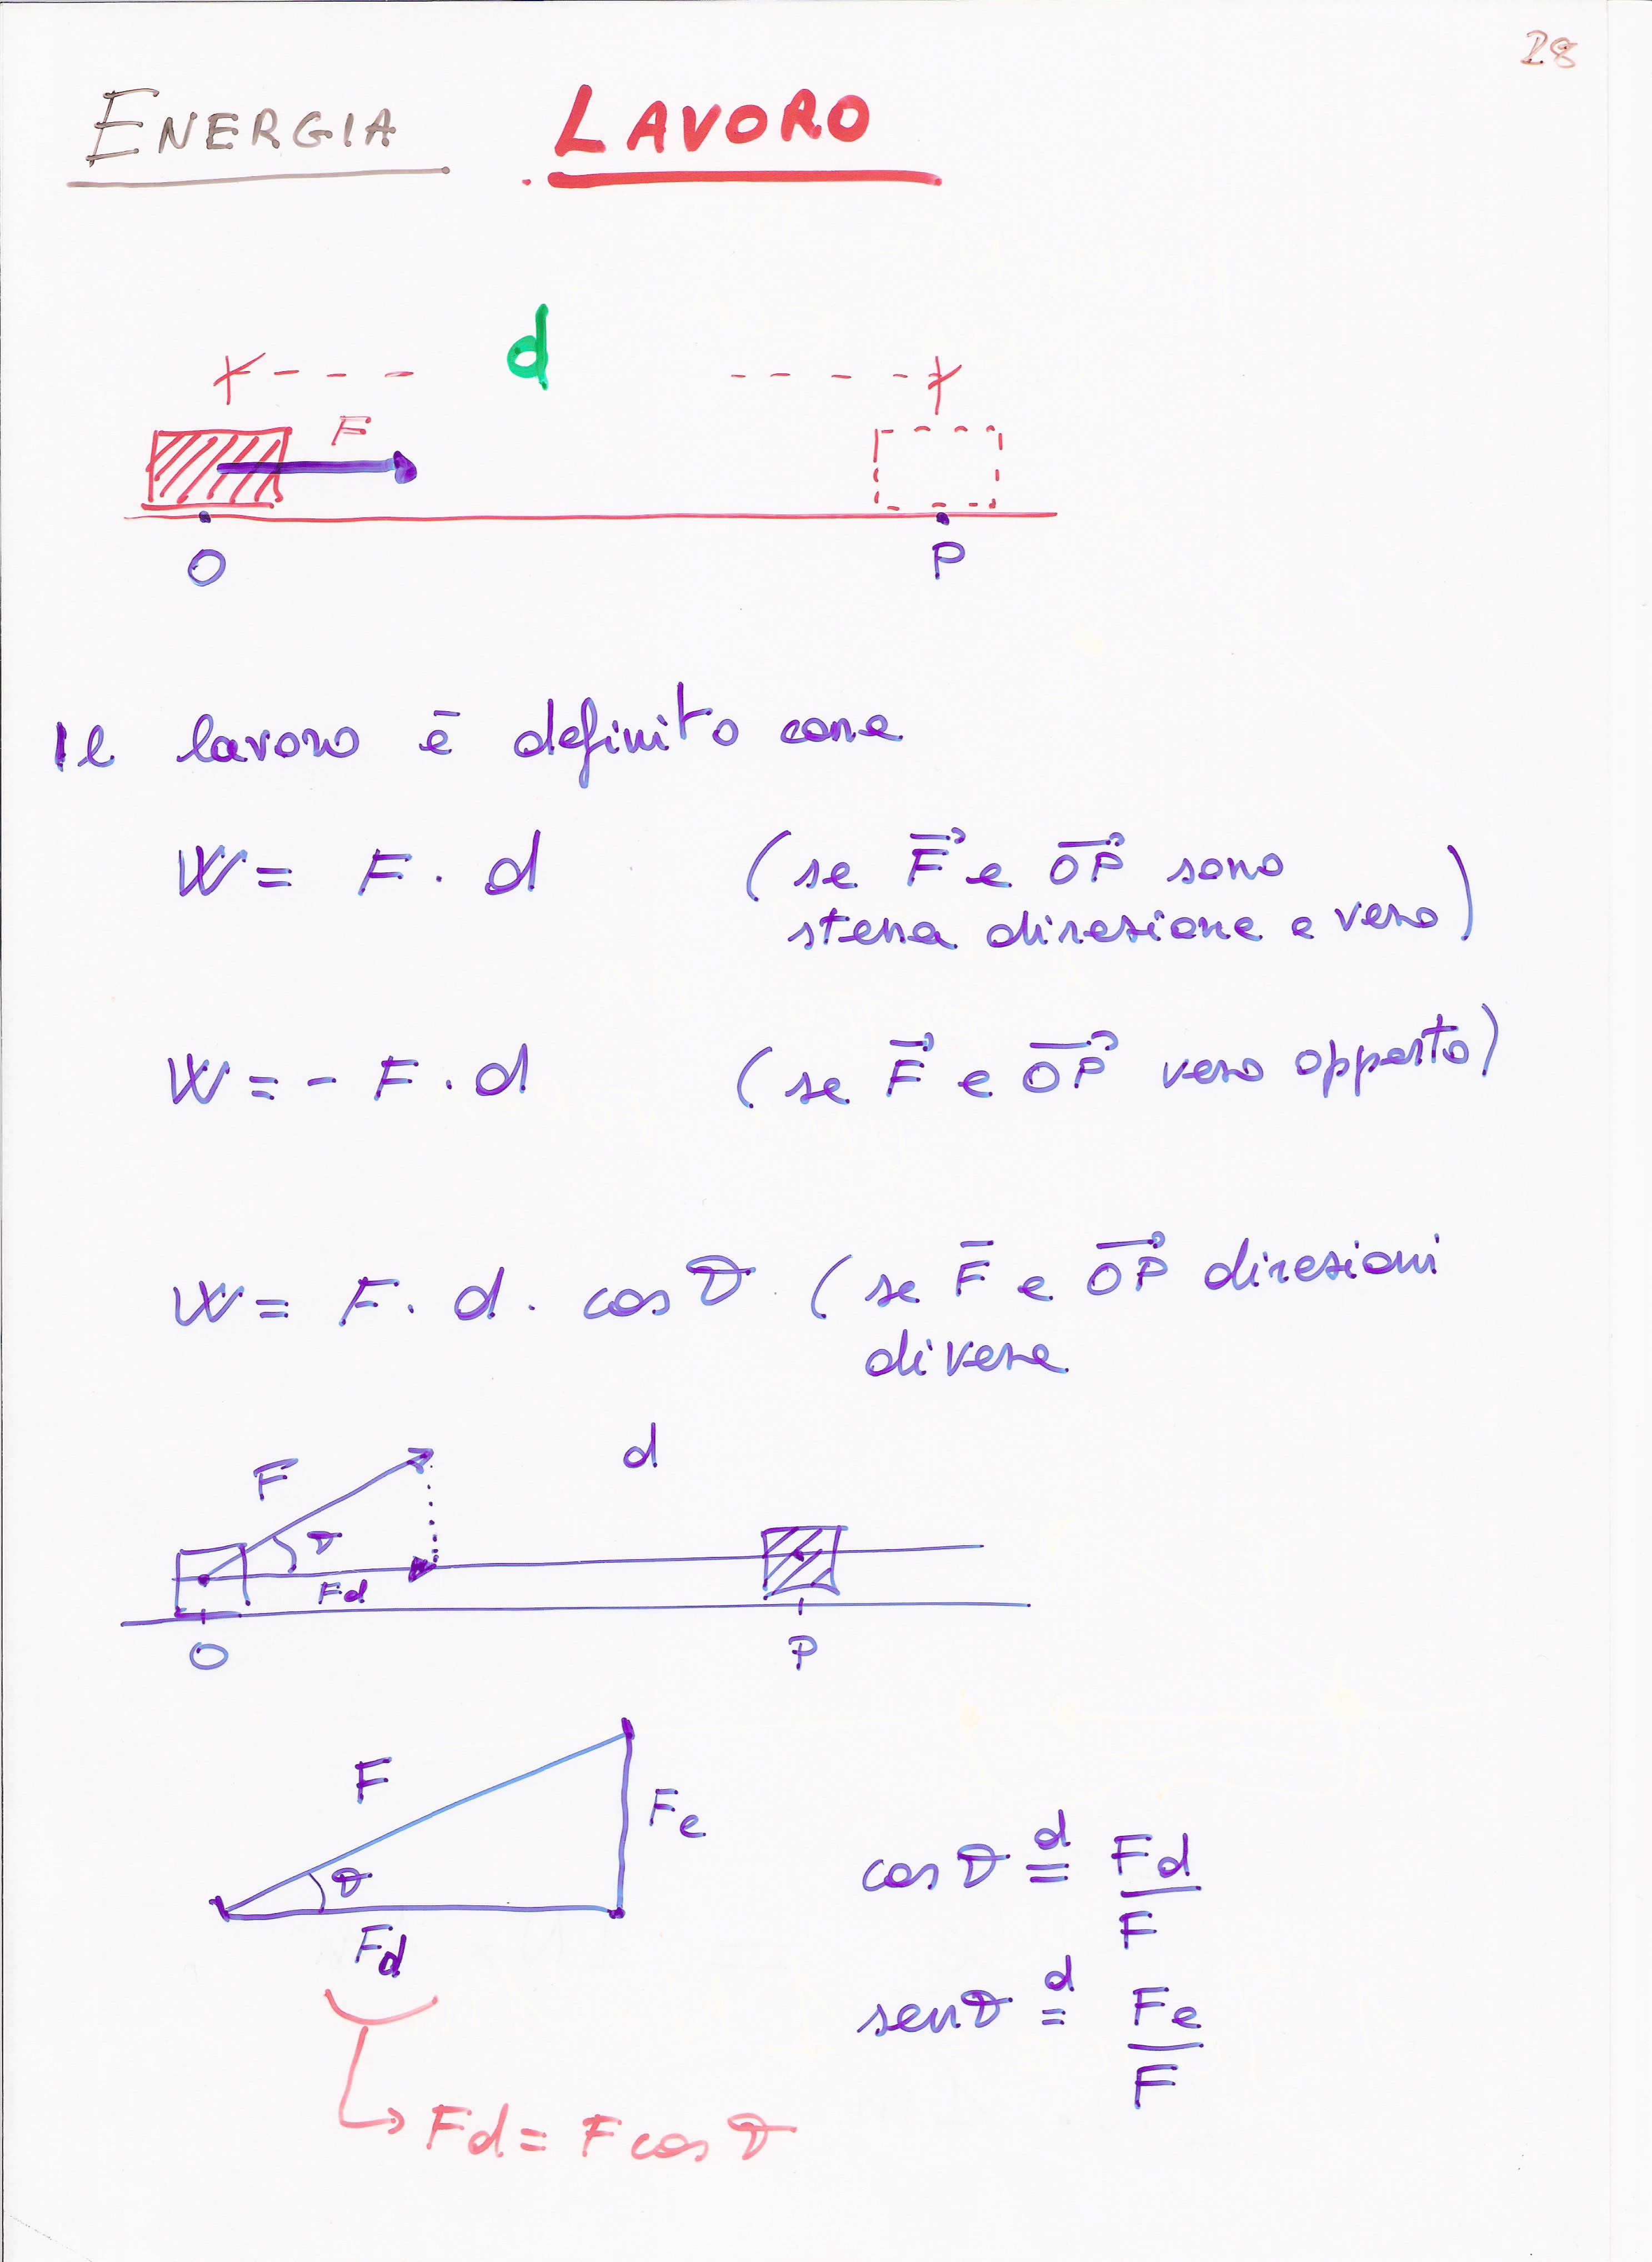 28
ENERGIA LAVORO
d
F
O P
Il lavoro ē definito come
W = F . d (se F⃗ e OP⃗ sono
stessa direzione e verso)
W = - F . d (se F⃗ e OP⃗ verso opposto)
W = F. d. cos ϑ (se F̄ e OP⃗ direzioni
diverse
F d
ϑ
Fd
O P
F
Fe
ϑ
Fd
cos ϑ =ᵈ Fd
F
sen ϑ =ᵈ Fe
F
Fd = F cos ϑ